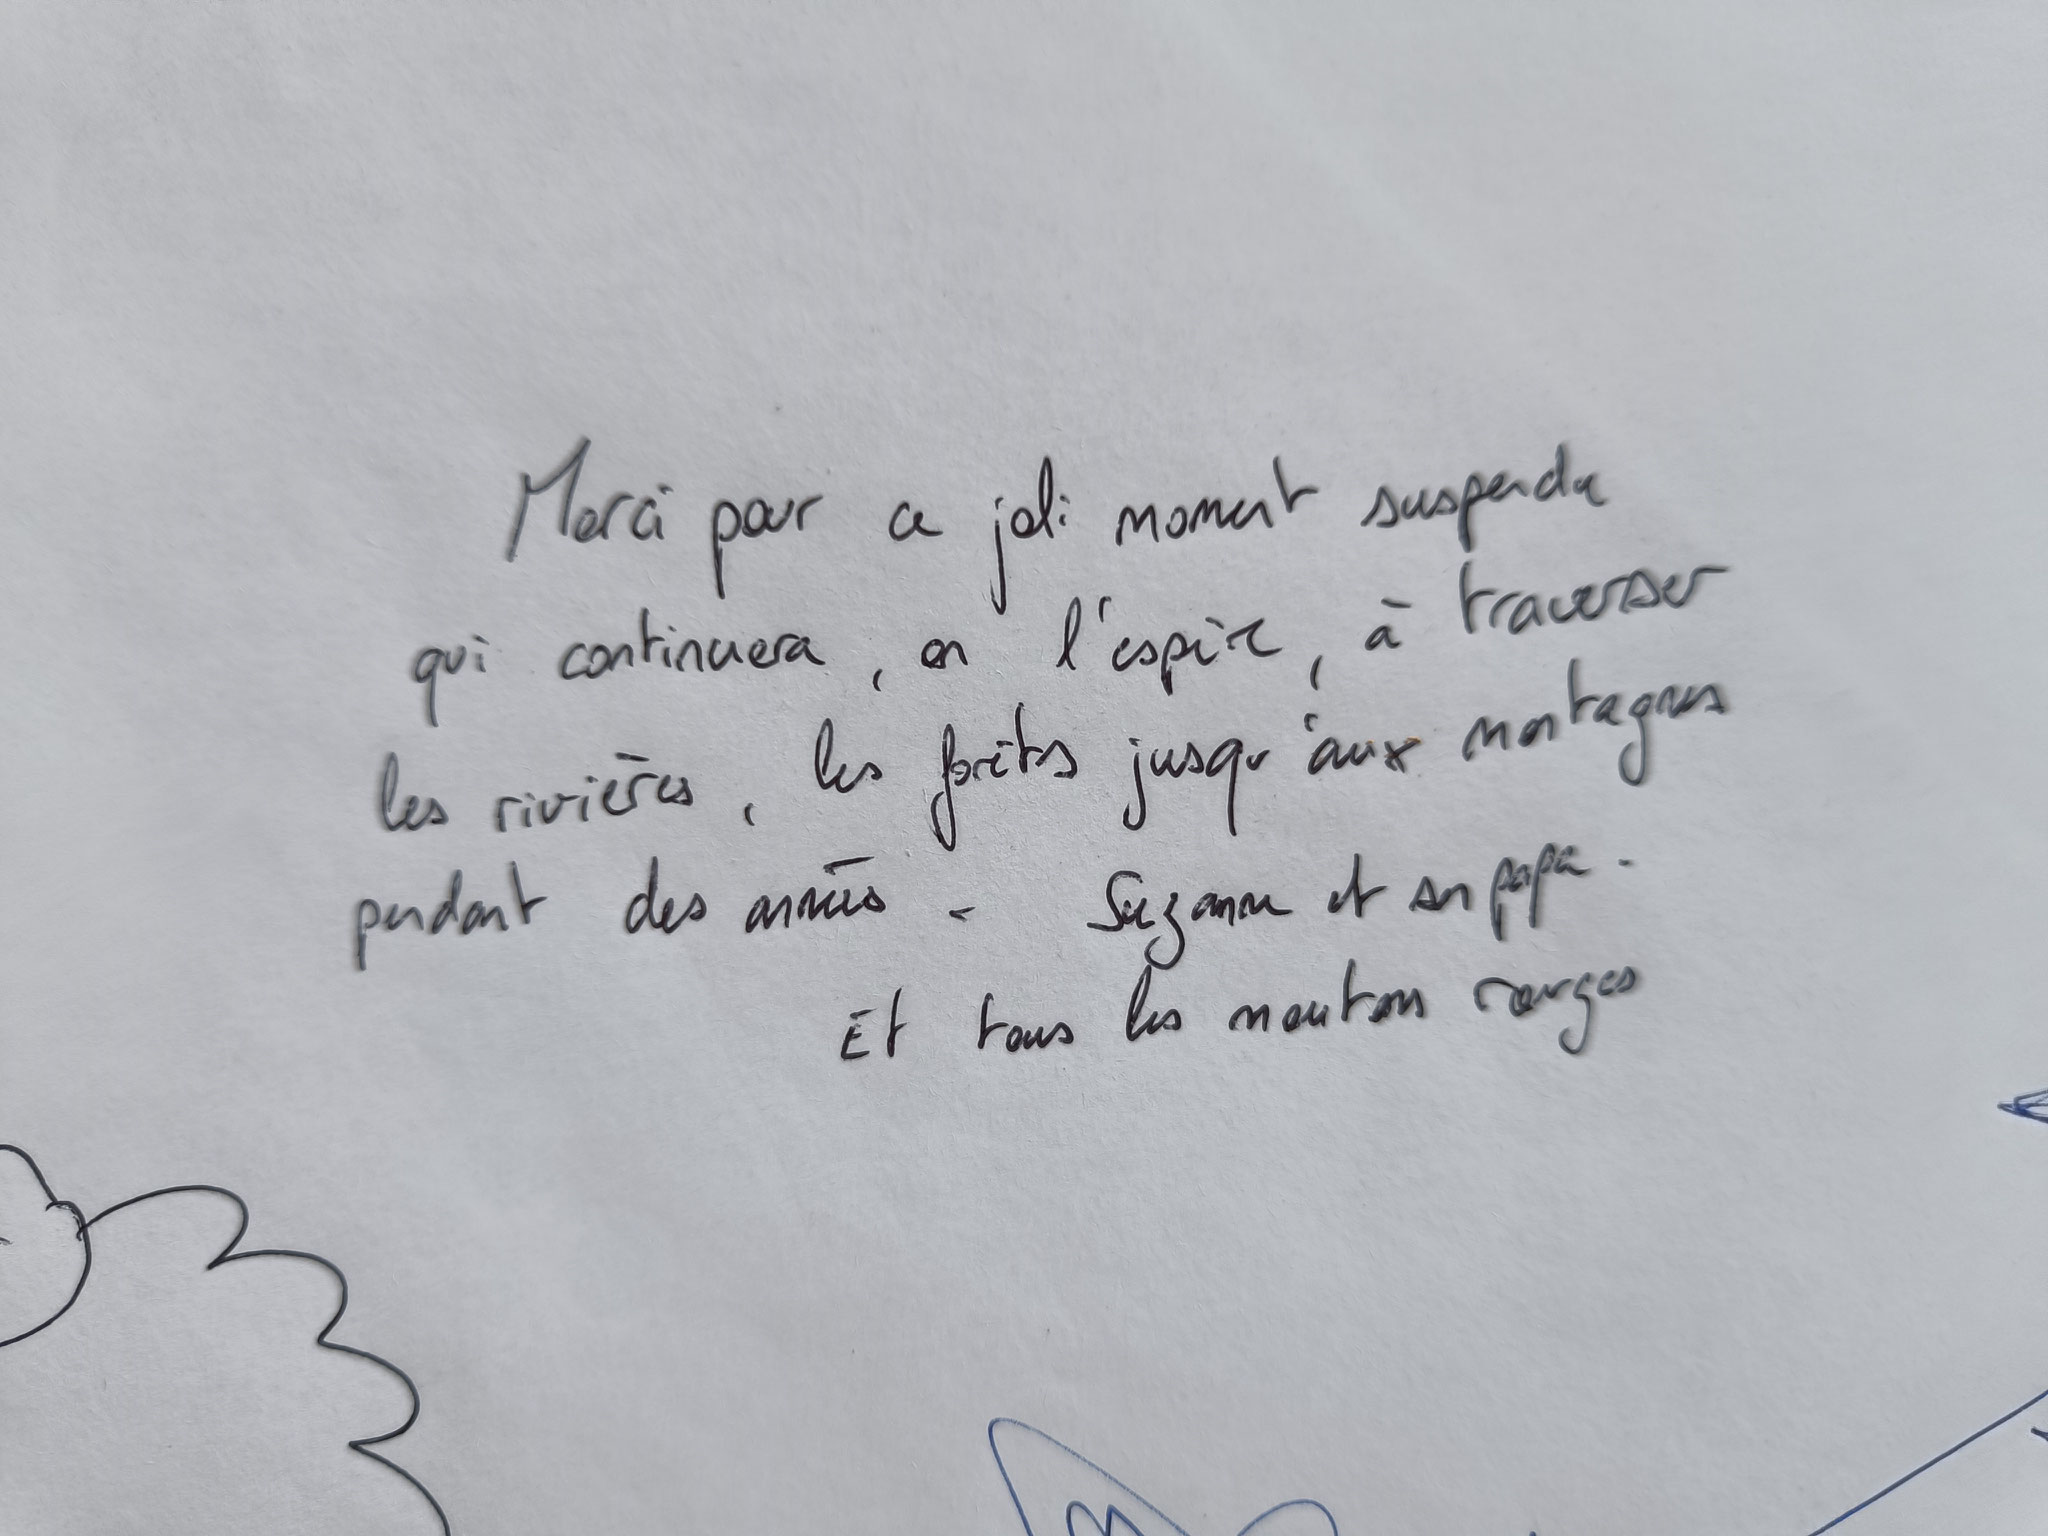 Merci pour ce joli moment suspendu
qui continuera, on l'espère, à traverser
les rivières, les forêts jusqu'aux montagnes
pendant des années. Suzanne et son papa.
Et tous les moutons rouges